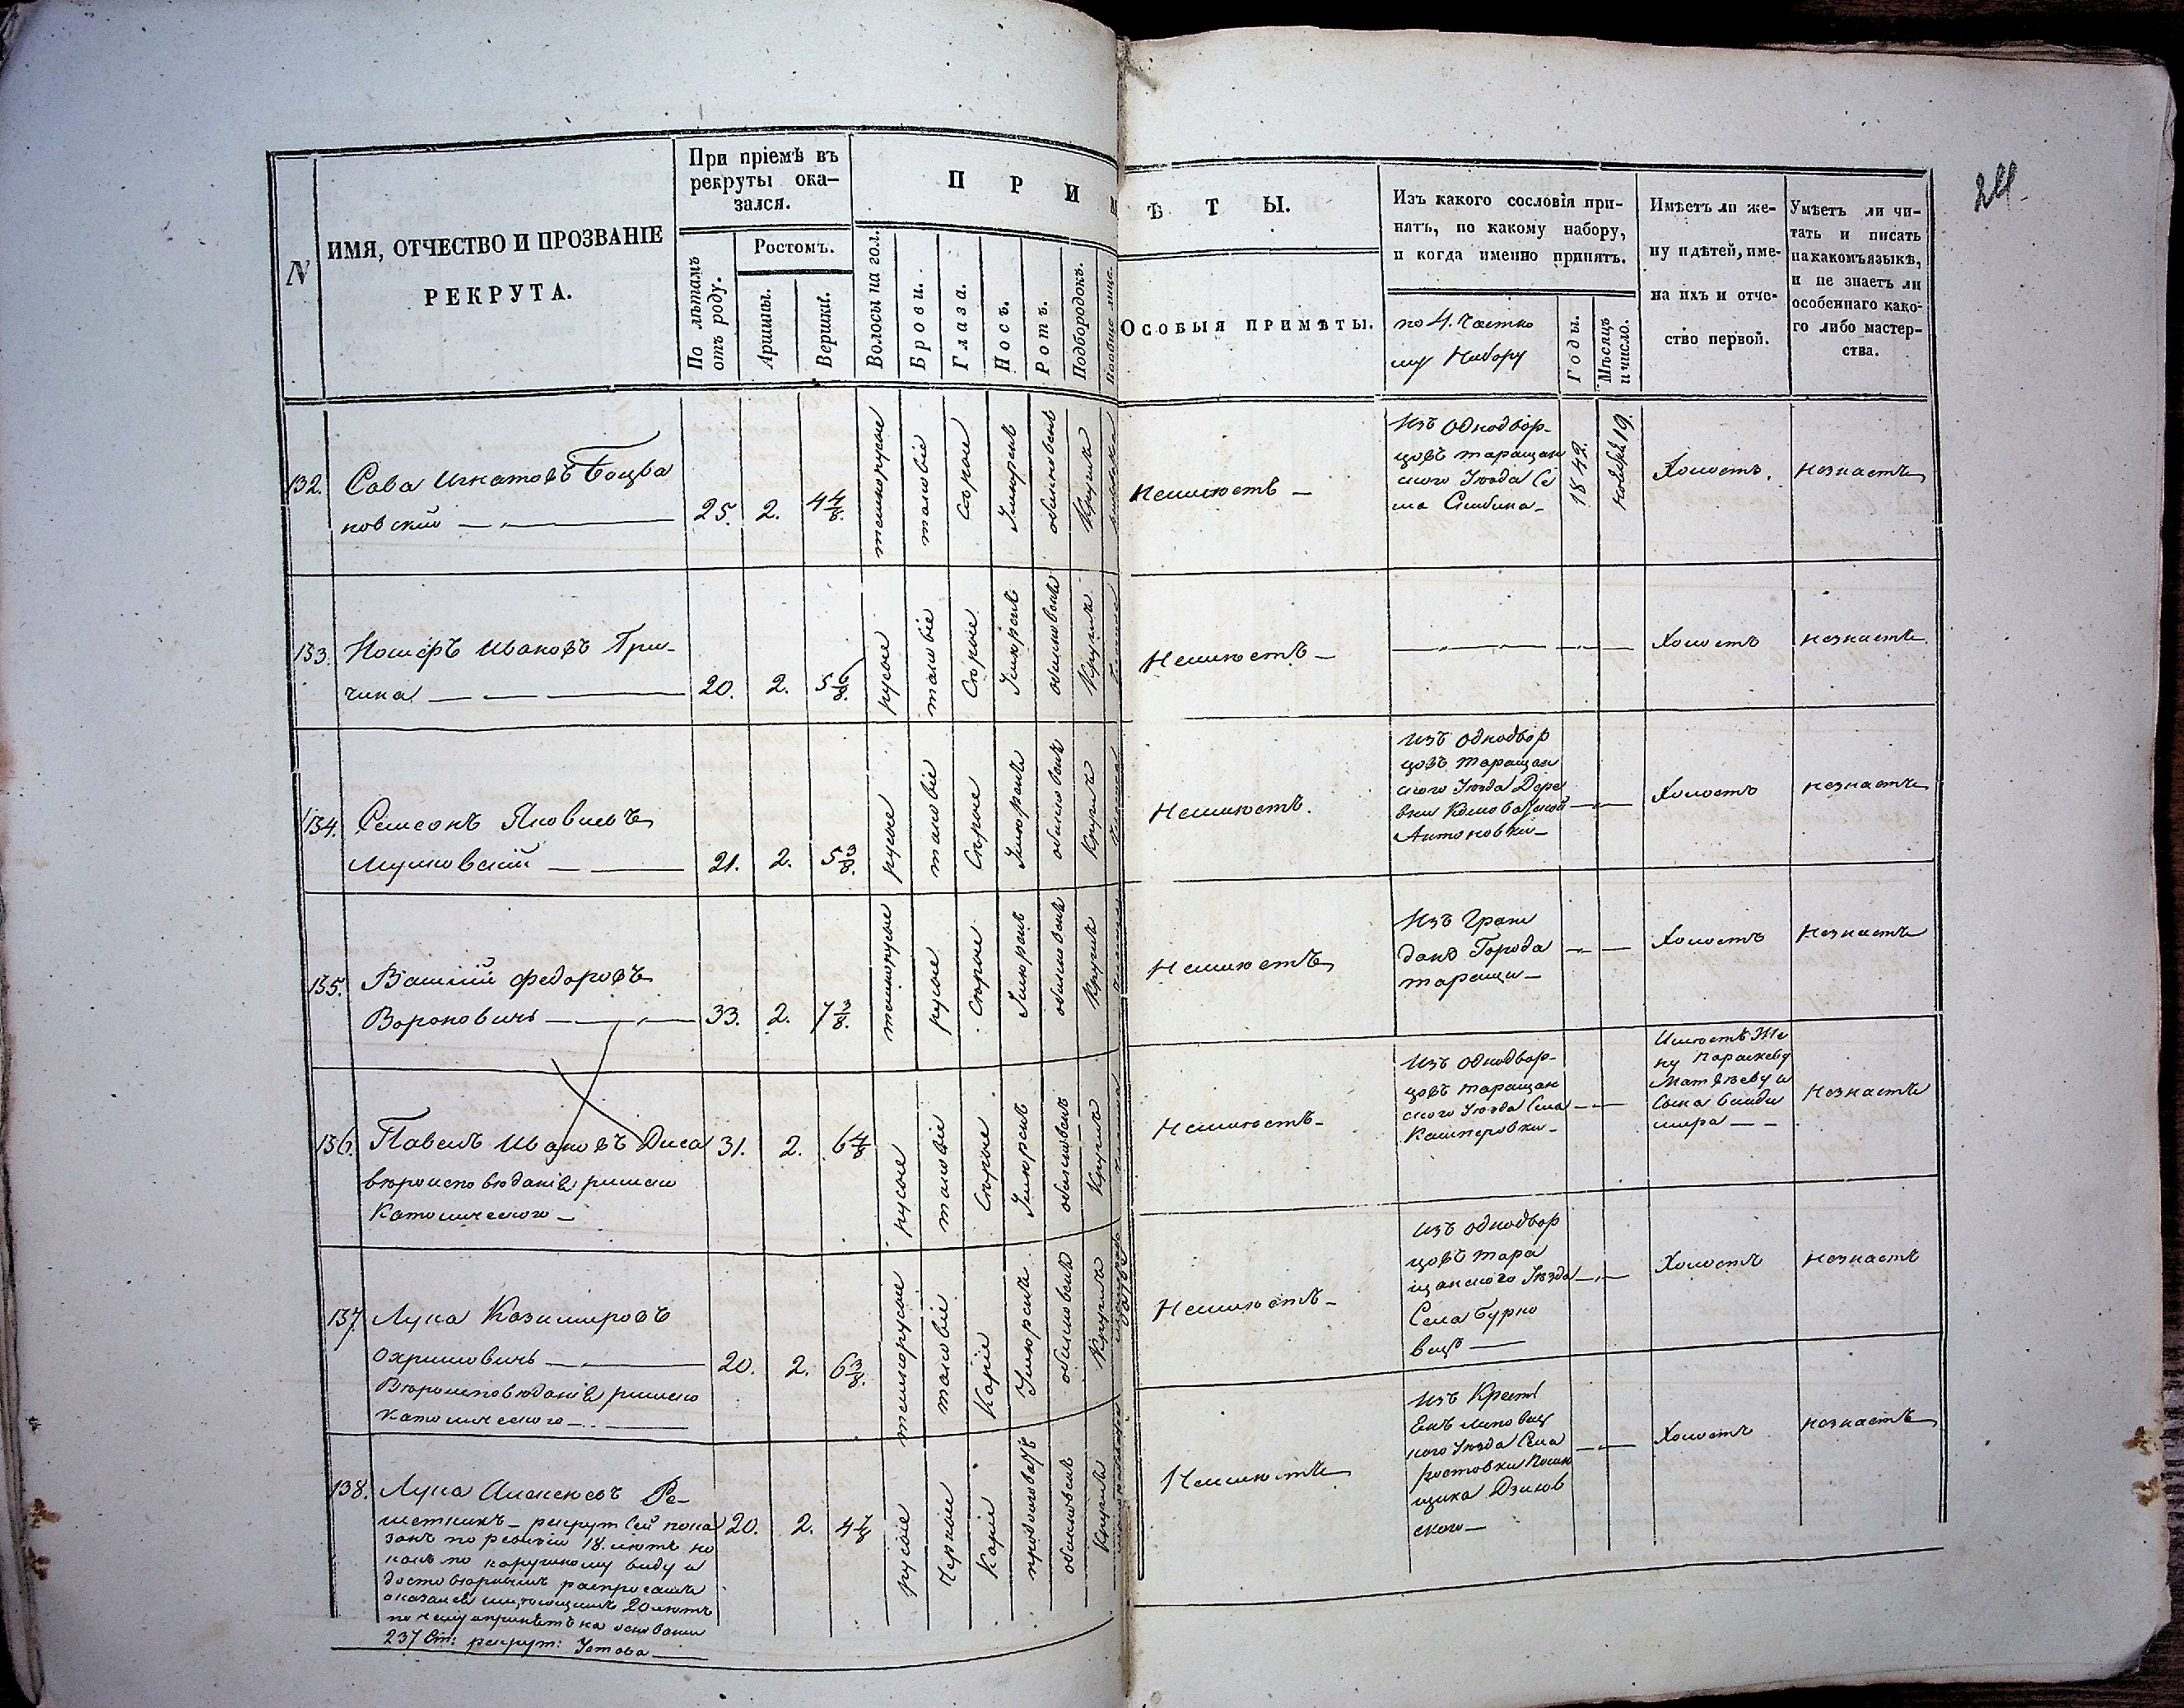 24.
N
ИМЯ, ОТЧЕСТВО И ПРОЗВАНІЕ
РЕКРУТА.
При пріемѣ въ
рекруты ока-
зался.
По лѣтамъ
отъ роду.
Ростомъ.
Аршины.
Вершки.
П Р И
Ѣ Т Ы.
Волосы на гол.
Брови.
Глаза.
Носъ.
Ротъ.
Подбородокъ.
Вообще лице.
ОСОБЫЯ ПРИМѢТЫ.
Изъ какого сословія при-
нятъ, по какому набору,
и когда именно принятъ.
по 4. Частно
му Набору
Годы.
Мѣсяцъ
и число.
Имѣетъ ли же-
ну и дѣтей, име-
на ихъ и отче-
ство первой.
Умѣетъ ли чи-
тать и писать
на какомъ языкѣ,
и не знаетъ ли
особеннаго како-
го либо мастер-
ства.
132.
Сава Игнатовъ
новскій
25.
2.
4 4/8.
темнорусые
таковіе
Сѣрые
Умѣренъ
обыкновенъ
Круглъ
Неимѣетъ
Изъ Однодвор-
цовъ таращан
ского Уѣзда Се
ла
1842.
Ноября 19.
Холостъ.
незнаетъ
133.
Іосифъ Ивановъ Гри-
чина
20.
2.
русые
таковіе
Сѣрые
Умѣренъ
обыкновенъ
Круглъ
Неимѣетъ
Холостъ
незнаетъ
134.
Семеонъ Яковлевъ
21.
2.
5 3/8.
русые
таковіе
Сѣрые
Умѣренъ
обыкновенъ
Круглъ
Неимѣетъ.
Изъ Однодвор
цовъ Таращан
ского Уѣзда Дере
вни
Антоновки
Холостъ
незнаетъ
135.
Василій Федоровъ
Вороновичъ
33.
2.
7 3/8.
темнорусые
русые
Сѣрые
Умѣренъ
обыкновенъ
Круглъ
Неимѣетъ
Изъ Граж
данъ Города
таращи
Холостъ
Незнаетъ
136.
Павелъ Ивановъ Лиса
вѣроисповѣданія римско
Католического
31.
2.
6 4/8
русые
таковіе
Сѣрые
Умѣренъ
обыкновенъ
Круглъ
Неимѣетъ
Изъ Однодвор-
цовъ таращан
ского Уѣзда Села
Кашперовки
Имѣетъ Же
ну Параскеву
Матвѣеву и
Сына Влади
мира
Незнаетъ
137.
Лука Казимировъ
Охримовичъ
Вѣроисповѣданія римско
католического
20.
2.
6 3/8.
темнорусые
таковіе
Каріе
Умѣренъ
обыкновенъ
Круглъ
Неимѣетъ
Изъ Однодвор
цовъ тара
щанского Уѣзда
Села Бурко
вецъ
Холостъ
незнаетъ
138.
Лука Алексѣевъ Ре-
шетникъ – рекрутъ сей пока
занъ по ревизіи 18. лѣтъ но
какъ по наружному виду и
достовѣрнымъ распросамъ
оказался имѣющимъ 20 лѣтъ
по чему принятъ на основаніи
237 Ст: рекрут: Устава
20.
2.
русые
Черные
Каріе
продолговатъ
обыкновенъ
Круглъ
Неимѣетъ
Изъ Кресть
янъ липовец
кого Уѣзда Села
ростовки Помѣ
щика
ского
Холостъ
незнаетъ